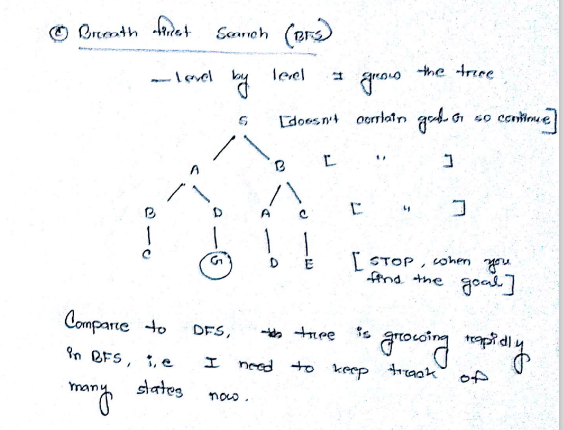 © Breath first Search (BFS)
— level by level I grow the tree
S [doesn't contain goal G so continue]
A B [ " ]
B D A C [ " ]
C G D E [STOP, when you
find the goal]
Compare to DFS, tree is growing rapidly
in BFS, i,e I need to keep track of
many states now.